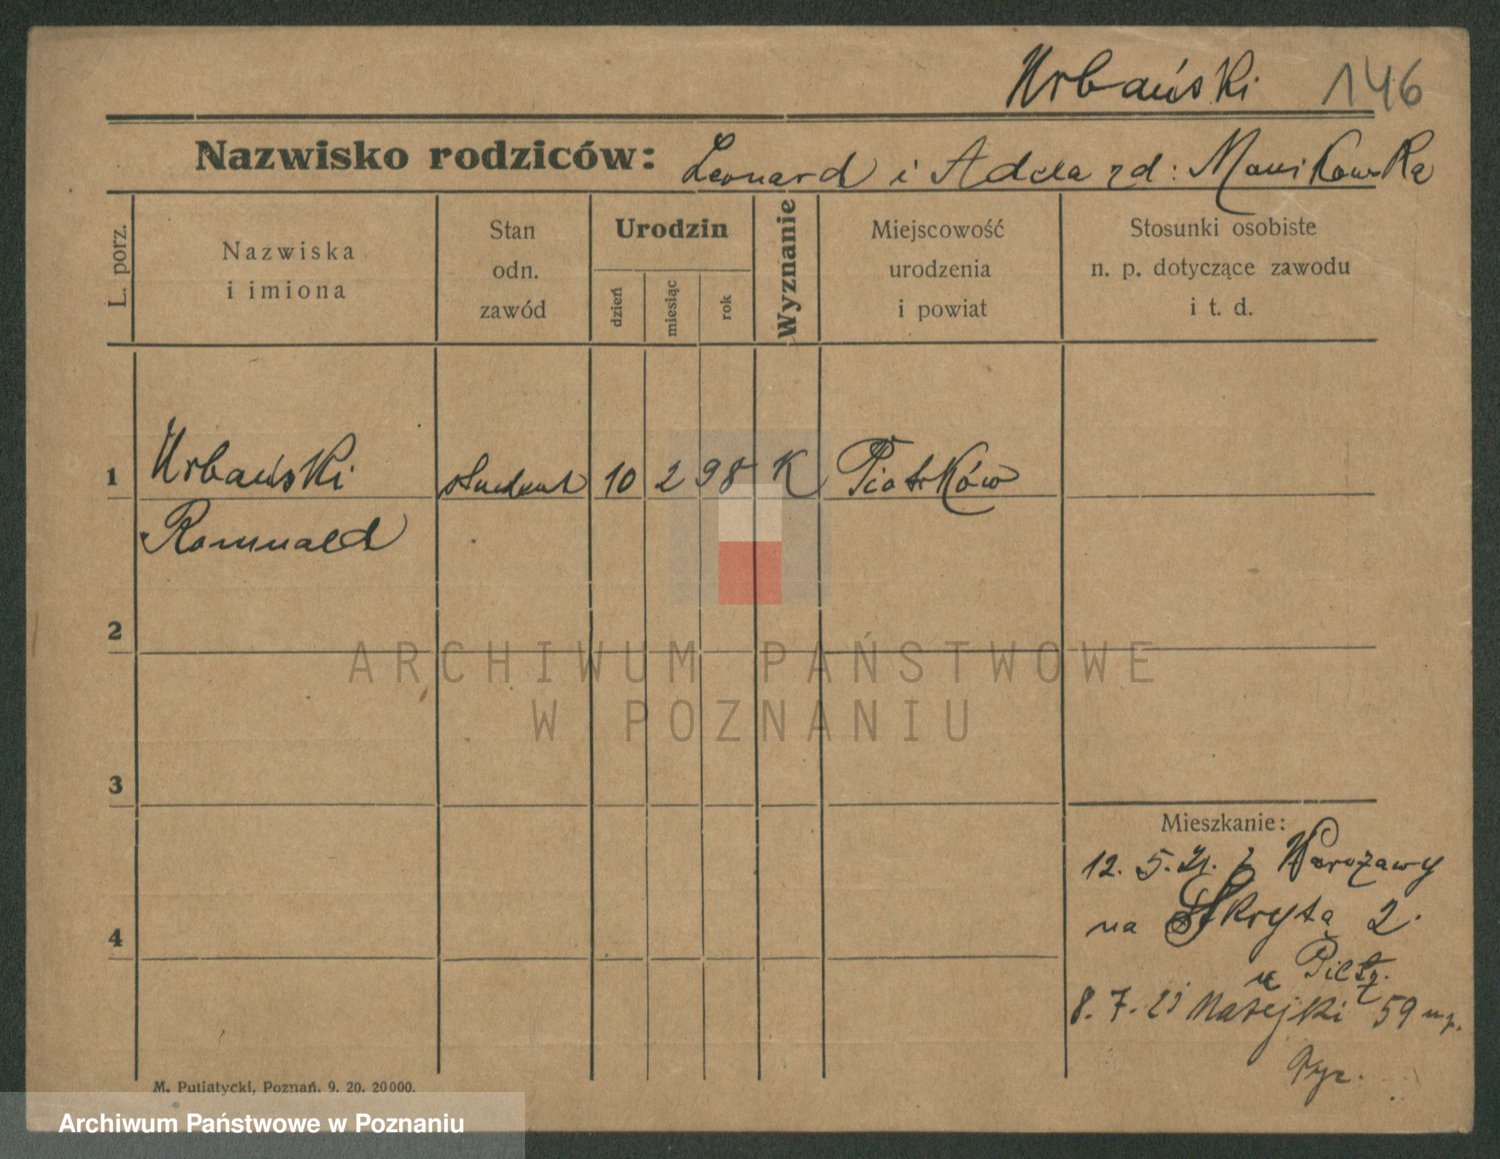 Urbański 146
Nazwisko rodziców: Leonard i Adela zd: Manikowska
L. porz.
Nazwiska
i imiona
Stan
odn.
zawód
Urodzin
dzień
miesiąc
rok
Wyznanie
Miejscowość
urodzenia
i powiat
Stosunki osobiste
n. p. dotyczące zawodu
i t. d.
1 Urbański student 10 2 98 K Piotrków
Romuald
2
3
4
Mieszkanie:
12. 5. 21. z Warszawy
na Skryta 2.
u
8. 7. 23 Matejki 59
M. Putiatycki, Poznań. 9. 20. 20000.
ARCHIWUM PAŃSTWOWE
W POZNANIU
Archiwum Państwowe w Poznaniu